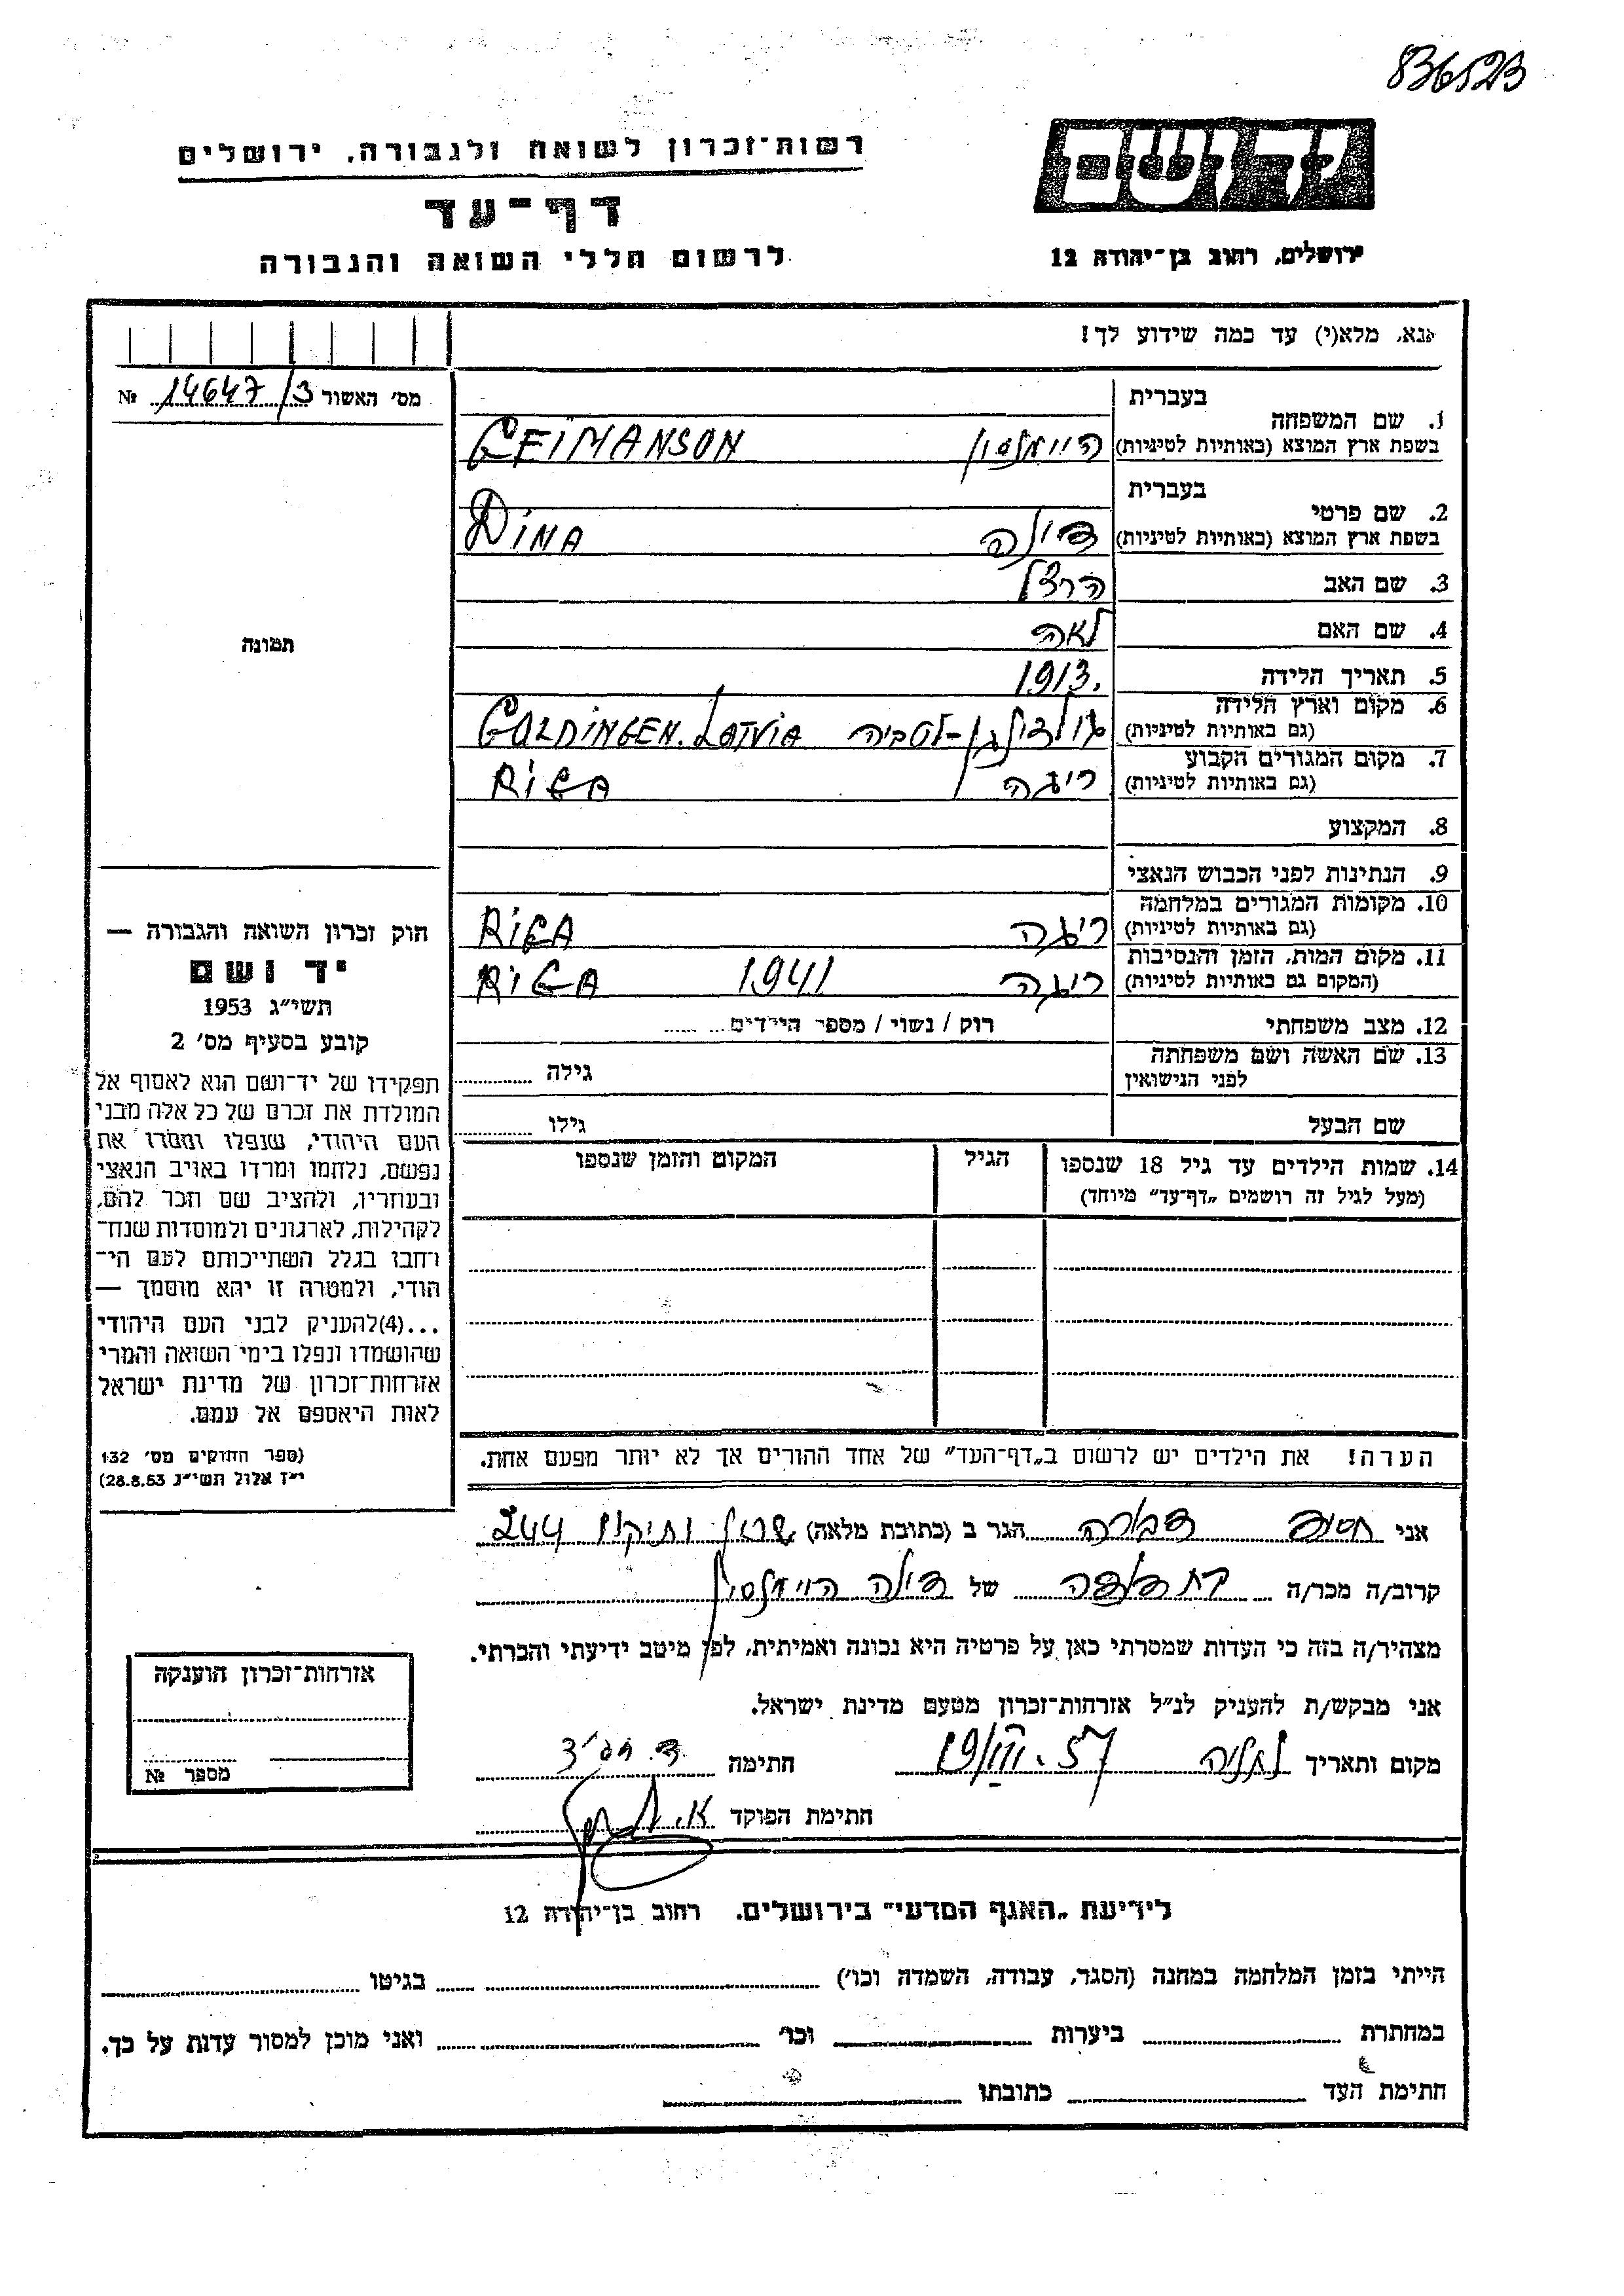 836523
יד ושם
ירושלים, רחוב בן־יהודה 12
רשות־זכרון לשואה ולגבורה, ירושלים
דף־עד
לרשום חללי השואה והגבורה
אנא, מלא(י) עד כמה שידוע לך!
מס' האשור 14647/3 №
בעברית
1. שם המשפחה
בשפת ארץ המוצא (באותיות לטיניות) היימנסון GEIMANSON
בעברית
2. שם פרטי
בשפת ארץ המוצא (באותיות לטיניות) דינה DINA
3. שם האב הרצל
4. שם האם לאה
5. תאריך הלידה 1913.
6. מקום וארץ הלידה
(גם באותיות לטיניות) גולדינגן-לטביה GOLDINGEN. LATVIA
7. מקום המגורים הקבוע
(גם באותיות לטיניות) ריגה RIGA
8. המקצוע
9. הנתינות לפני הכבוש הנאצי
10. מקומות המגורים במלחמה
(גם באותיות לטיניות) ריגה RIGA
11. מקום המות, הזמן והנסיבות
(המקום גם באותיות לטיניות) ריגה 1941 RIGA
12. מצב משפחתי רוק / נשוי / מספר הילדים
13. שם האשה ושם משפחתה
לפני הנישואין גילה
שם הבעל גילו
14. שמות הילדים עד גיל 18 שנספו הגיל המקום והזמן שנספו
(מעל לגיל זה רושמים „דף־עד" מיוחד)
הערה! את הילדים יש לרשום ב„דף־העד" של אחד ההורים אך לא יותר מפעם אחת.
תמונה
חוק זכרון השואה והגבורה —
יד ושם
תשי״ג 1953
קובע בסעיף מס' 2
תפקידו של יד־ושם הוא לאסוף אל
המולדת את זכרם של כל אלה מבני
העם היהודי, שנפלו ומסרו את
נפשם, נלחמו ומרדו באויב הנאצי
ובעוזריו, ולהציב שם וזכר להם,
לקהילות, לארגונים ולמוסדות שנח־
רחבו בגלל השתייכותם לעם הי־
הודי, ולמטרה זו יהא מוסמך —
...(4)להעניק לבני העם היהודי
שהושמדו ונפלו בימי השואה והמרי
אזרחות־זכרון של מדינת ישראל
לאות היאספם אל עמם.
(ספר החוקים מס' 132
י״ז אלול תשי״ג 28.8.53)
אני דבורה הגר ב (כתובת מלאה) 244
קרוב/ה מכר/ה בת דודה של דינה היימנסון
מצהיר/ה בזה כי העדות שמסרתי כאן על פרטיה היא נכונה ואמיתית, לפי מיטב ידיעתי והכרתי.
אני מבקש/ת להעניק לנ״ל אזרחות־זכרון מטעם מדינת ישראל.
מקום ותאריך נתניה 19/VIII.57 חתימה
חתימת הפוקד
אזרחות־זכרון הוענקה
מספר №
לידיעת „האגף המדעי" בירושלים, רחוב בן־יהודה 12
הייתי בזמן המלחמה במחנה (הסגר, עבודה, השמדה וכו') בגיטו
במחתרת ביערות וכו' ואני מוכן למסור עדות על כך.
חתימת העד כתובתו